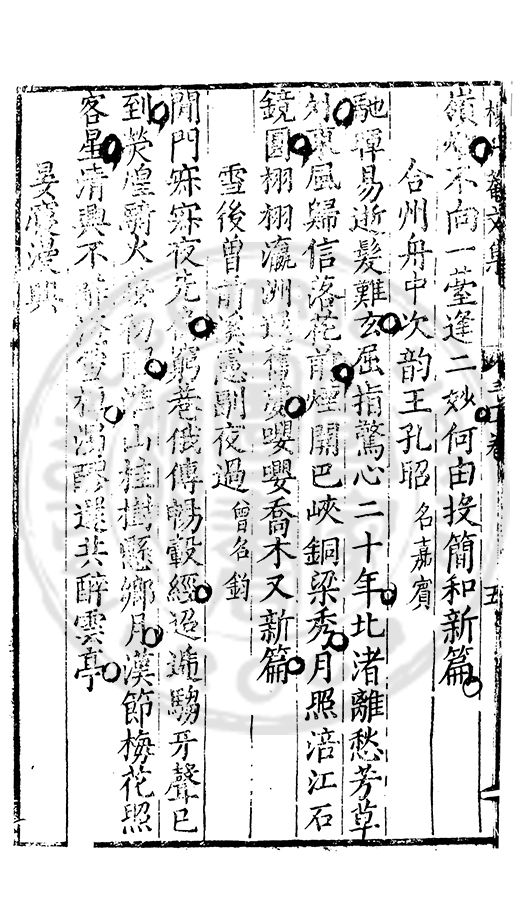 不向一臺逢二妙何由投簡和新篇
合州舟中次韵王孔昭 名嘉賓
馳暉易逝髮難玄屈指驚心二十年北渚離愁芳草
東風歸信落花前煙開巴峽銅梁秀月照涪江石
鏡圓栩栩瀛洲舊夢嚶嚶喬木又新篇
雪後曾前溪憲副夜過 曾名鈞
閉門寂寂夜窮巷俄傳暢轂經迢遞騶牙聲已
到熒煌騎火初淮山桂樹懸鄉月漢節梅花照
客星清興不雪還共醉雲亭
漫興